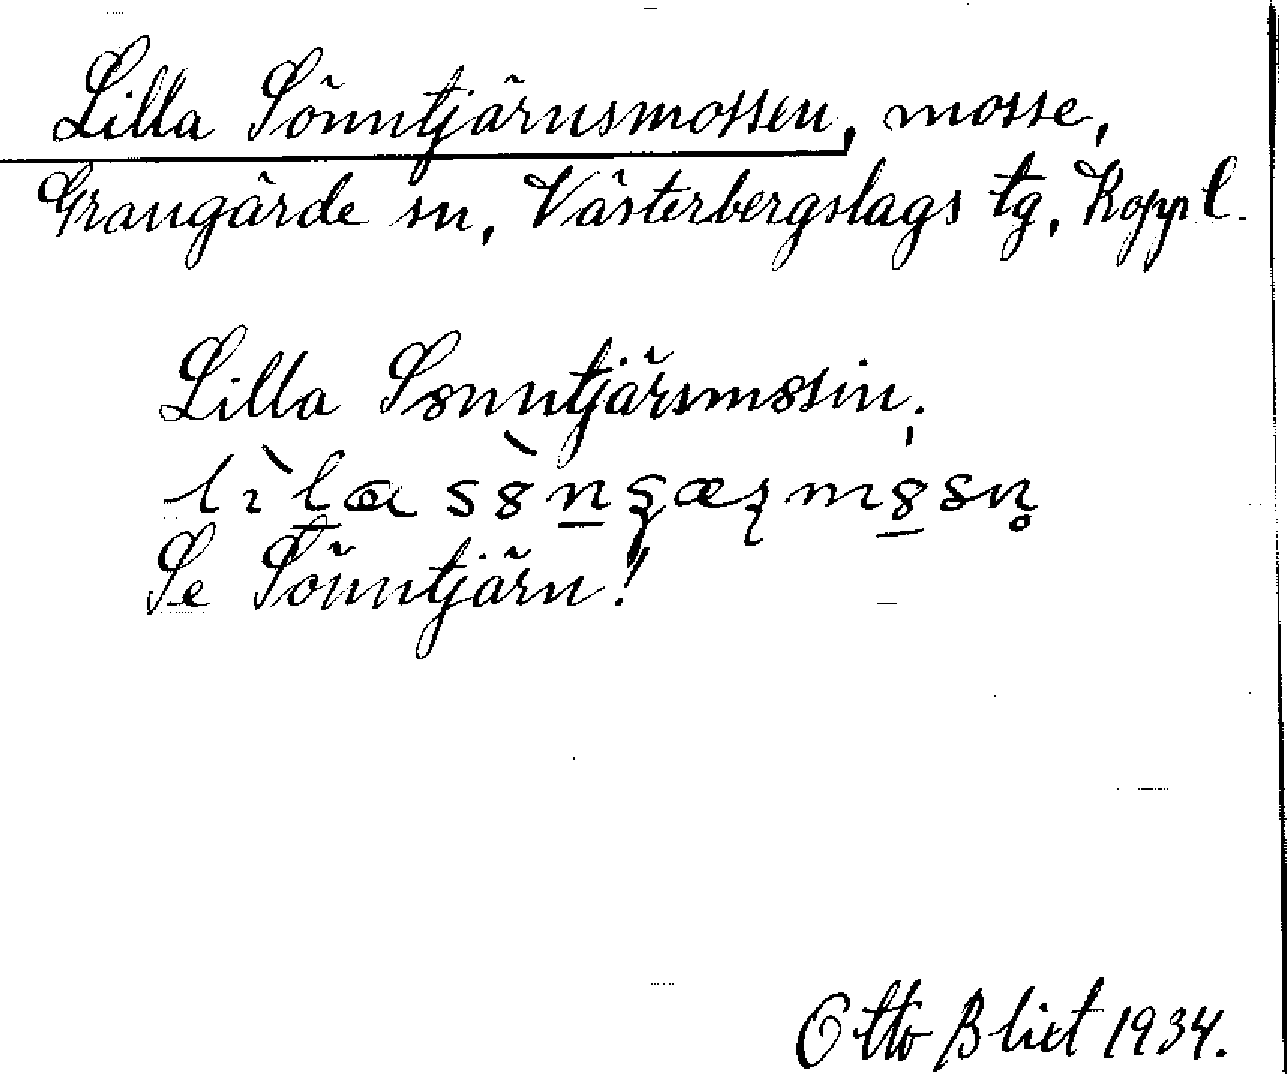 Lilla Sönntjärnsmossen, mosse,
Grangärde sn, Västerbergslags tg, Kopp. l.
Lilla Sonntjärsmossin;
Se Sönntjärn!
Otto Blixt 1934.